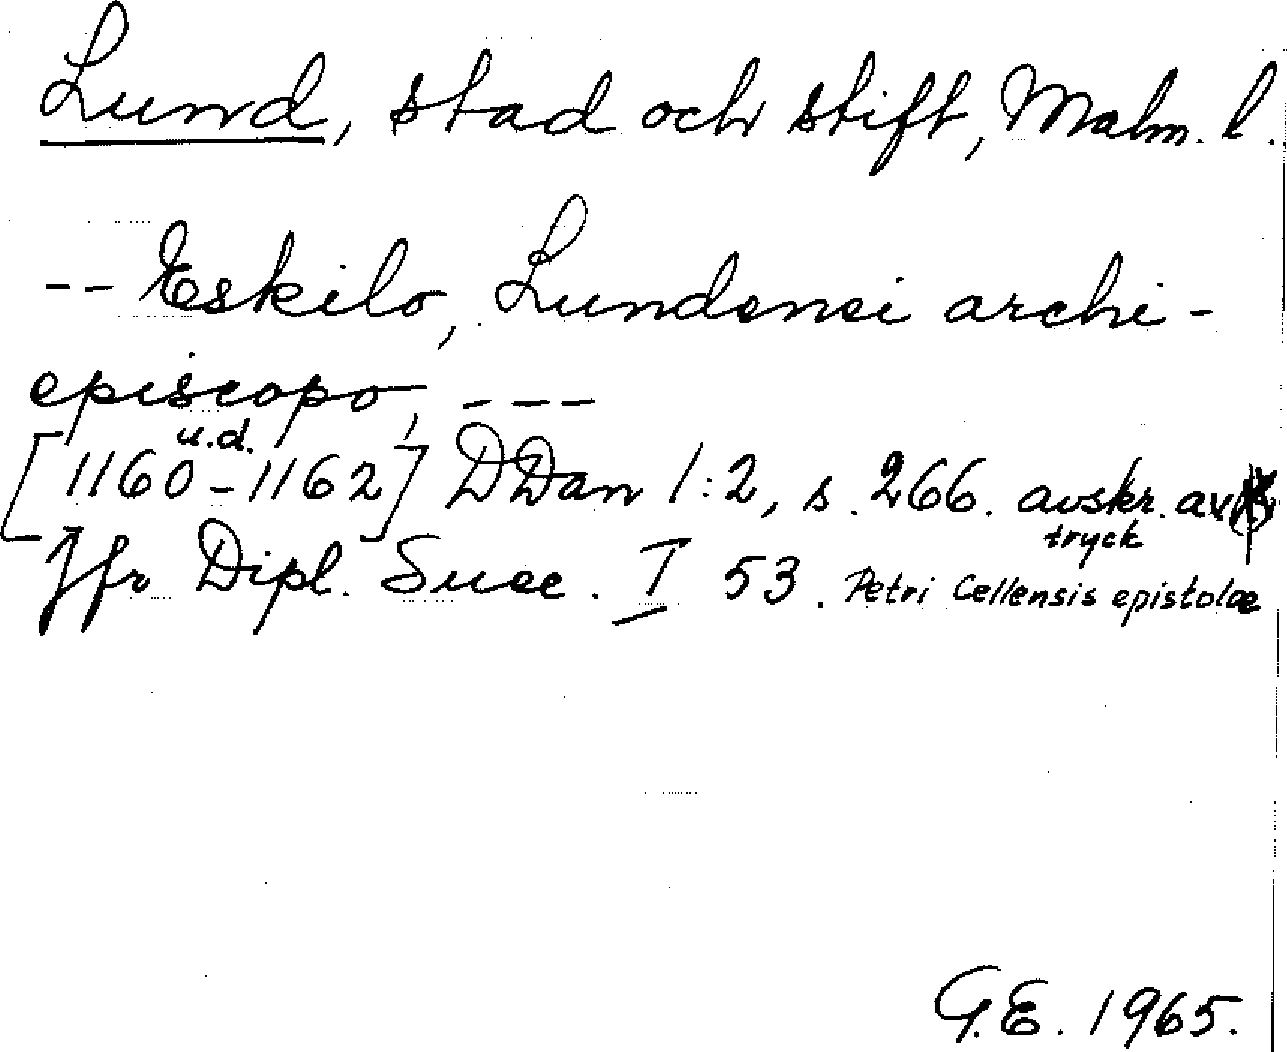 Lund, stad och stift, Malm. l.
-- Eskilo, Lundensi archi-
episcopo, ---
u.d.
[1160-1162] DDan 1:2, s. 266. avskr. av
tryck
Jfr Dipl. Suec. I 53. Petri Cellensis epistolæ
G.E. 1965.